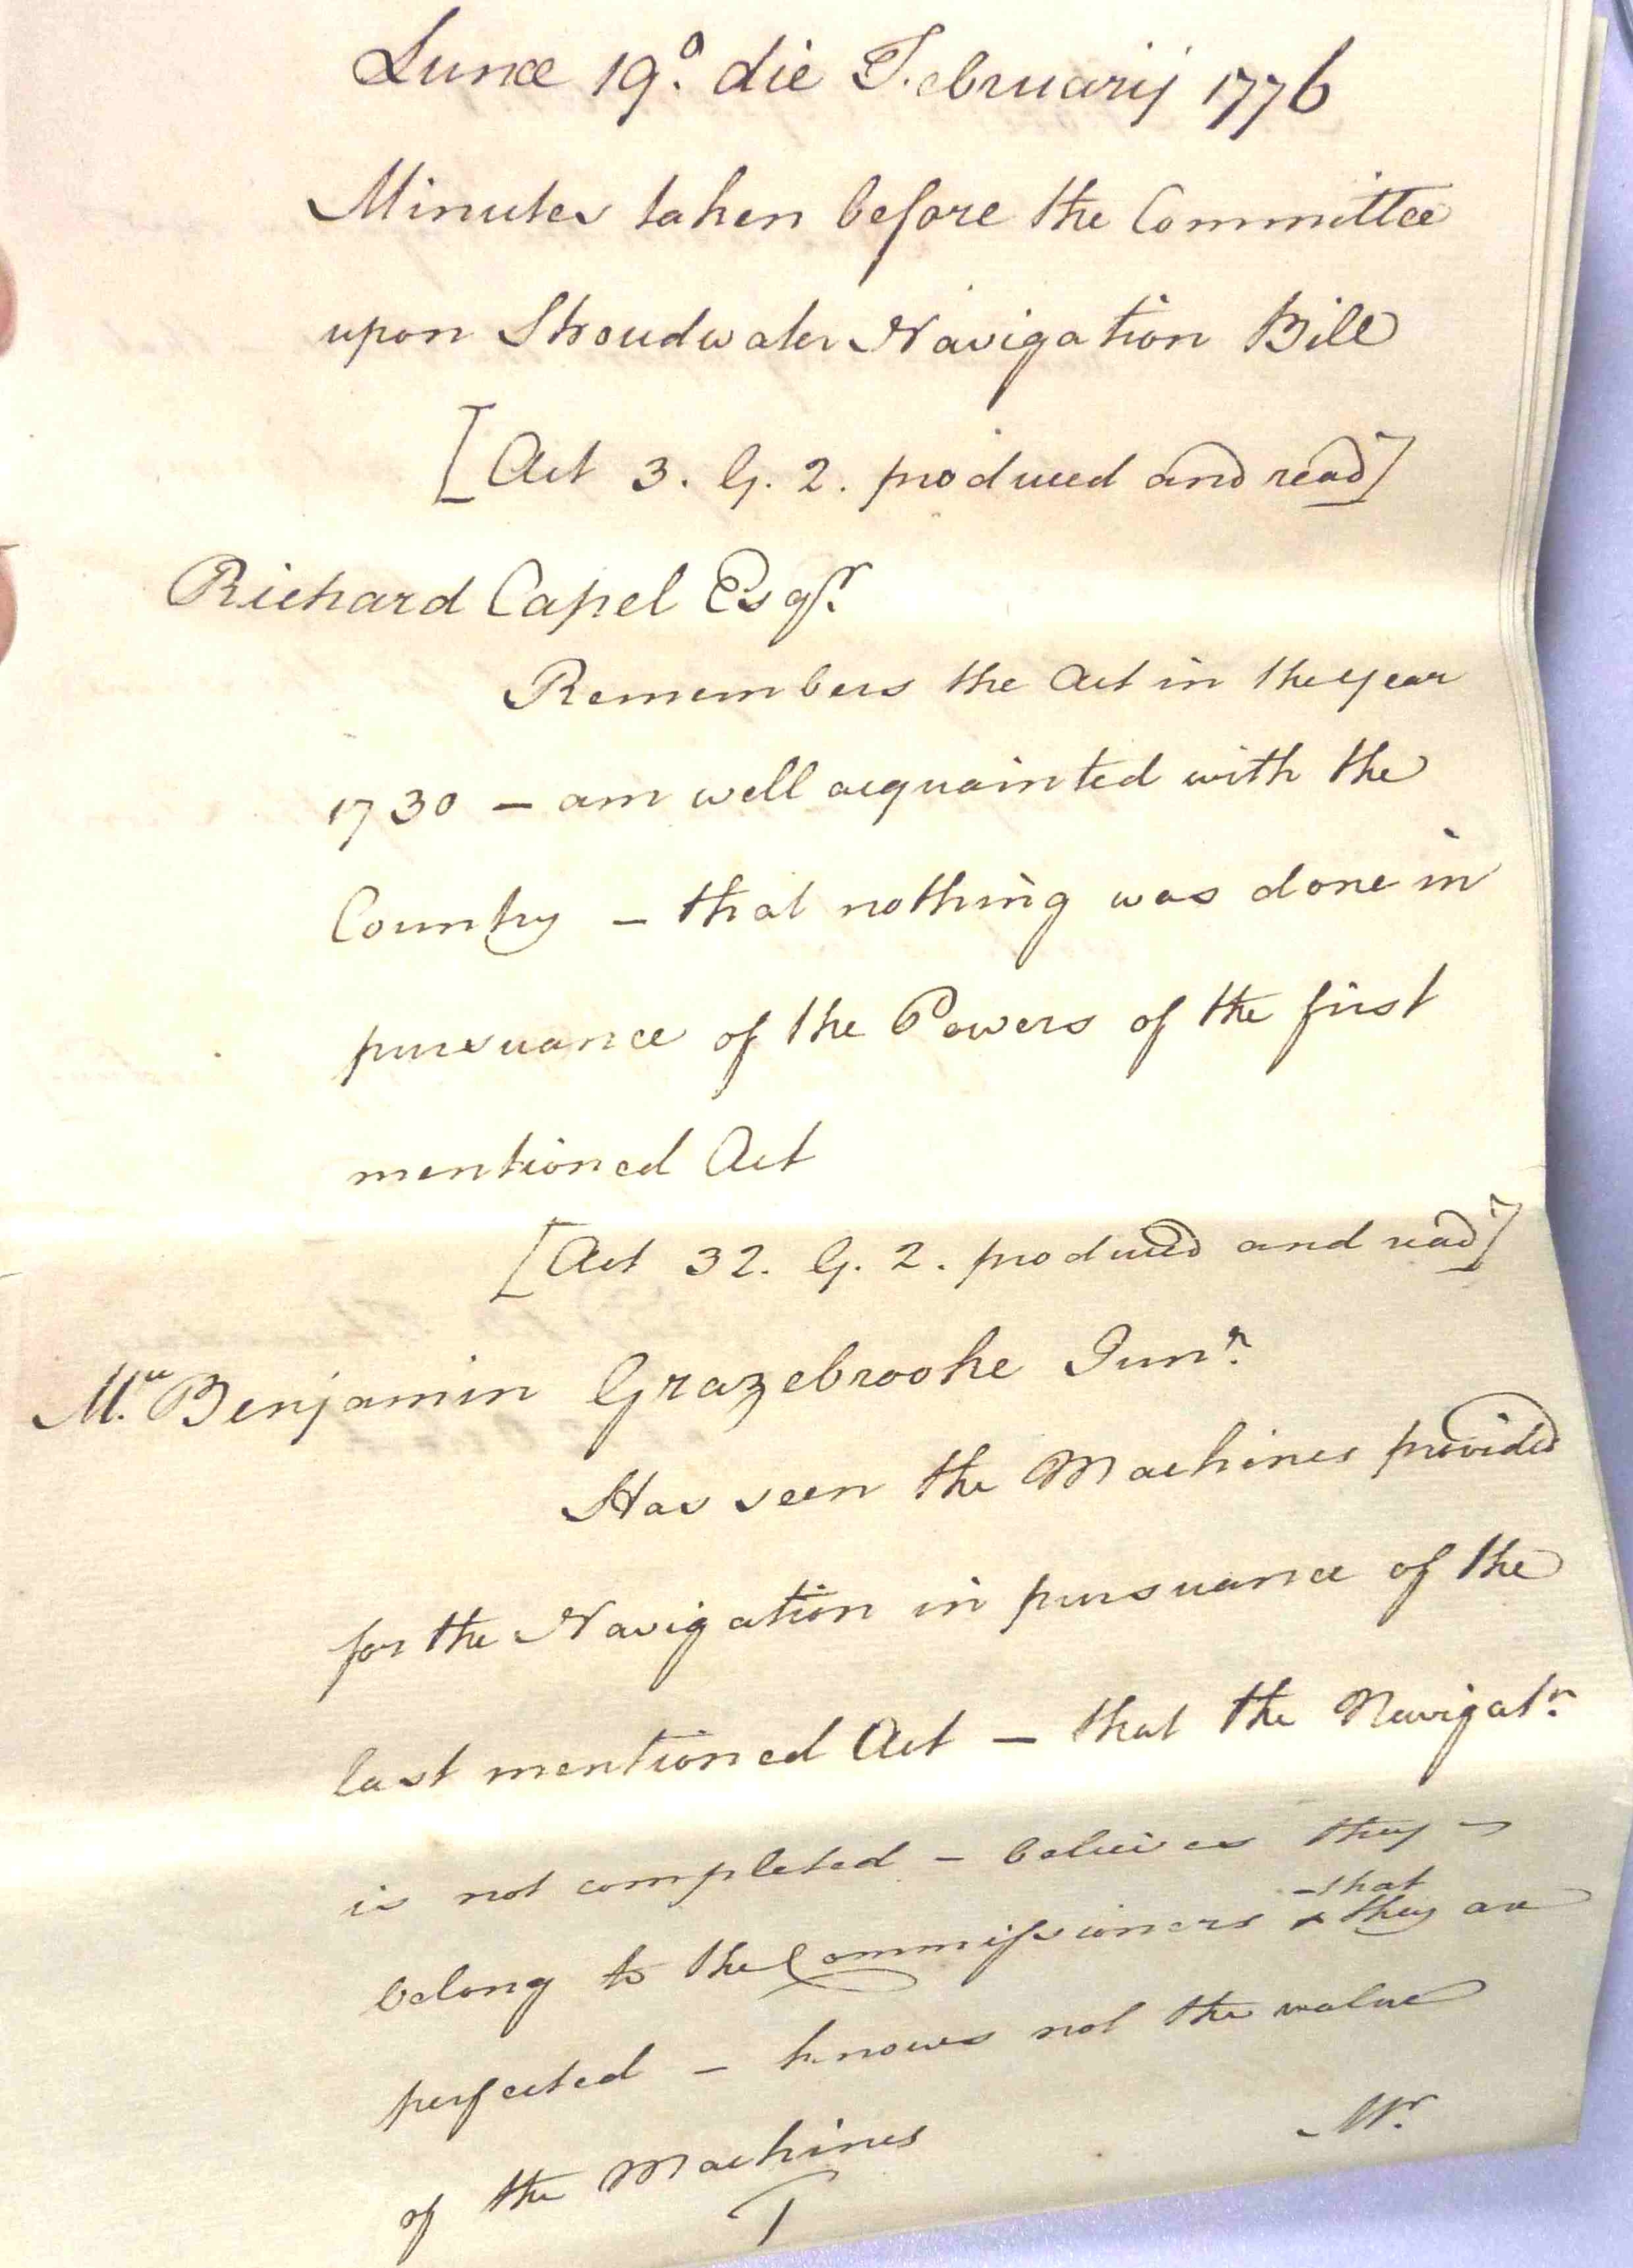 Lunæ 19.º die Februarij 1776
Minutes taken before the Committee
upon Stroudwater Navigation Bill
[Act 3. G. 2. produced and read]
Richard Capel Esqr.
Remembers the Act in the year
1730 – am well acquainted with the
Country – that nothing was done in
pursuance of the Powers of the first
mentioned Act
[Act 32. G. 2. produced and read]
Mr. Benjamin Grazebrooke Junr.
Has seen the Machines provided
for the Navigation in pursuance of the
last mentioned Act – that the Navigatn.
is not completed – believes they
that
belong to the Commissioners they are
perfected – knows not the value
of the Machines
Mr.